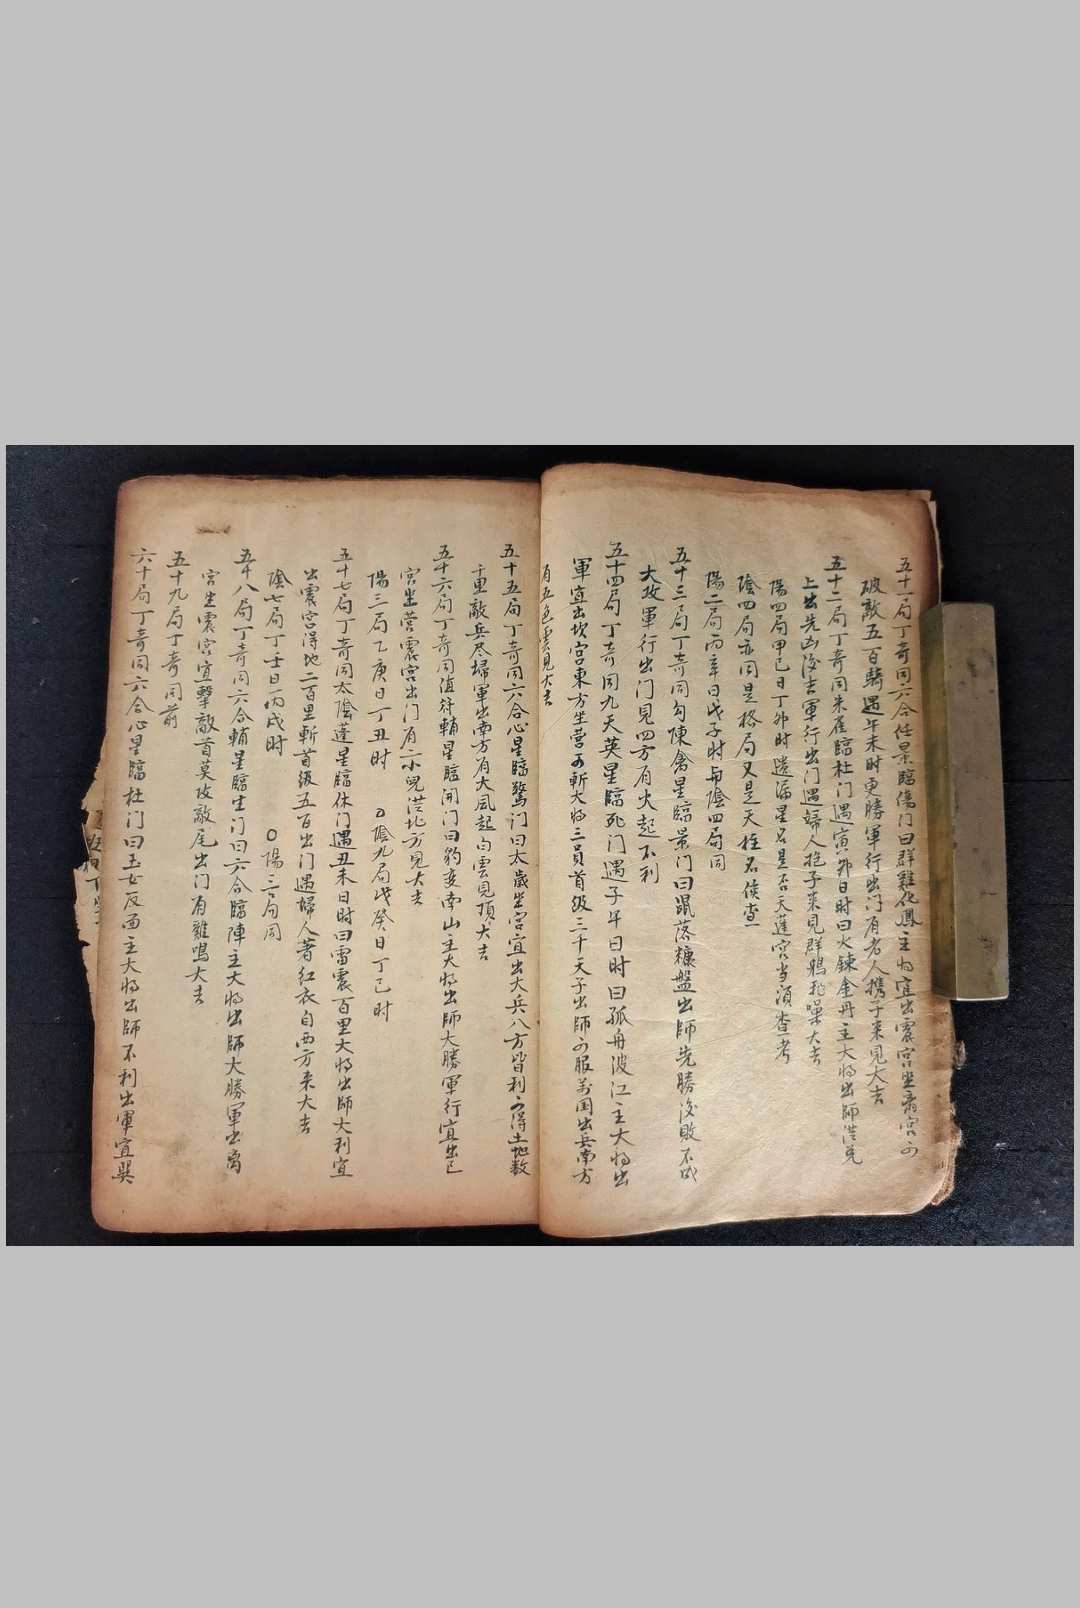 五十一局丁奇同六合任星臨傷门曰群雞化鳳主将宜出震宫坐离宫可
破敵五百騎遇午未时更勝軍行出门有老人携子来見大吉
五十二局丁奇同朱雀臨杜门遇寅卯日时曰火鍊金丹主大将出師从兑
上出先凶後吉軍行出门遇婦人抱子来見群鴉飛噪大吉
陽四局甲己日丁卯时遗漏星名是否天蓬宫当須查考
陰四局亦同是格局又是天柱名俟查
陽二局丙辛日戊子时与陰四局同
五十三局丁奇同勾陳禽星臨景门曰鼠落糠盤出師先勝後敗不成
大攻軍行出门見四方有火起不利
五十四局丁奇同九天英星臨死门遇子午日时曰孤舟波江主大将出
軍宜出坎宫東方坐营可斬大将三員首级三十天子出師可服萬国出兵南方
有五色雲見大吉
五十五局丁奇同六合心星臨驚门曰太歲坐宫宜出大兵八方皆利可得土地数
千里敵兵尽掃軍出南方有大風起白雲見頂大吉
五十六局丁奇同值符輔星臨開门曰豹变南山主大将出師大勝軍行宜出巳
宫坐营震宫出门有二小兒从北方見大吉
陽三局乙庚日丁丑时 〇陰九局戊癸日丁巳时
五十七局丁奇同太陰蓬星臨休门遇丑未日时曰雷震百里大将出師大利宜
出震宫得地二百里斬首级五百出门遇婦人著红衣自西方来大吉
陰七局丁壬日丙戌时 〇陽三局同
五十八局丁奇同六合輔星臨生门曰六合臨陣主大将出師大勝軍出离
宫坐震宫宜擊敵首莫攻敵尾出门有雞鳴大吉
五十九局丁奇同前
六十局丁奇同六合心星臨杜门曰玉女反面主大将出師不利出軍宜巽